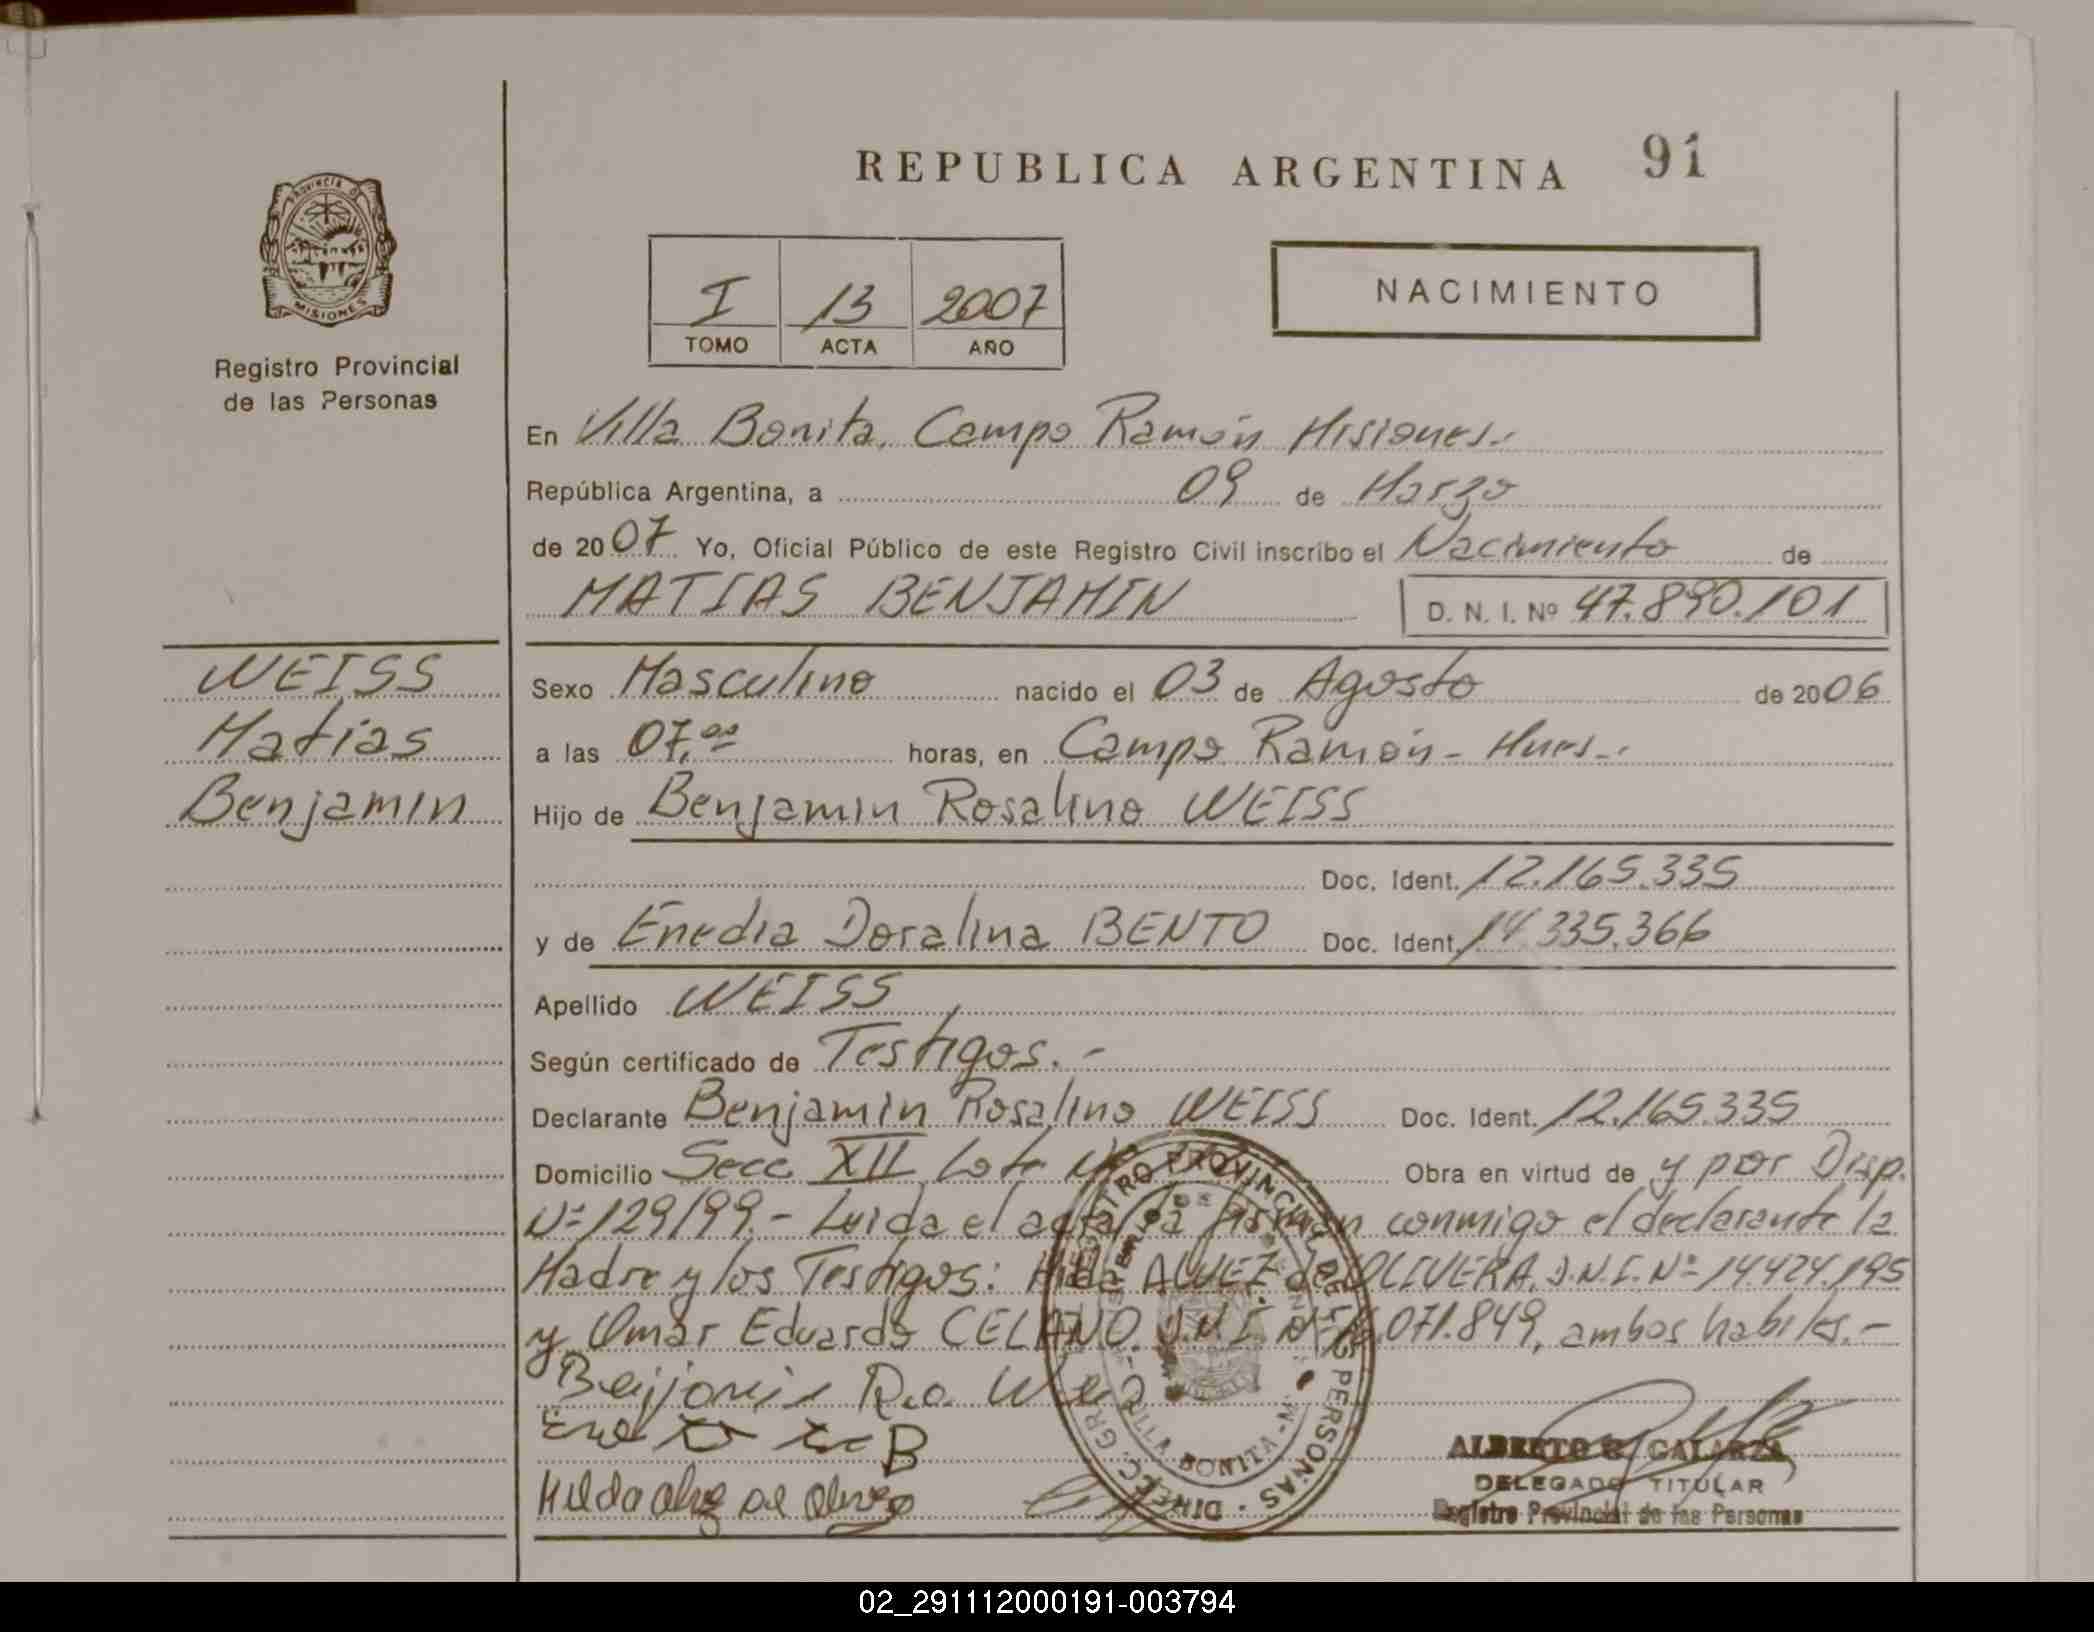 REPUBLICA ARGENTINA 91
PROVINCIA DE
MISIONES
Registro Provincial
de las Personas
I 13 2007
TOMO ACTA AÑO
NACIMIENTO
En Villa Bonita, Campo Ramón Misiones.-
República Argentina, a 09 de Marzo
de 2007 Yo, Oficial Público de este Registro Civil inscribo el Nacimiento de
MATIAS BENJAMIN D. N. I. Nº 47.890.101
WEISS
Matias
Benjamin
Sexo Masculino nacido el 03 de Agosto de 2006
a las 07,00 horas, en Campo Ramón - Mnes.-
Hijo de Benjamin Rosalino WEISS
Doc. Ident. 12.165.335
y de Enedia Doralina BENTO Doc. Ident. 14.335.366
Apellido WEISS
Según certificado de Testigos.-
Declarante Benjamin Rosalino WEISS Doc. Ident. 12.165.335
Domicilio Secc. XII Lote Obra en virtud de y por Disp.
Nº 129/99.- Leida el acta la firman conmigo el declarante la
Madre y los Testigos: Hilda ALVEZ de OLIVERA, D.N.I. Nº 14.424.195
y Omar Eduardo CELANO D.N.I. Nº .071.849, ambos habiles.-
ALBERTO R. GALARZA
DELEGADO TITULAR
Registro Provincial de las Personas
DIREC. GRAL. REGISTRO PROVINCIAL DE LAS PERSONAS
VILLA BONITA
02_291112000191-003794